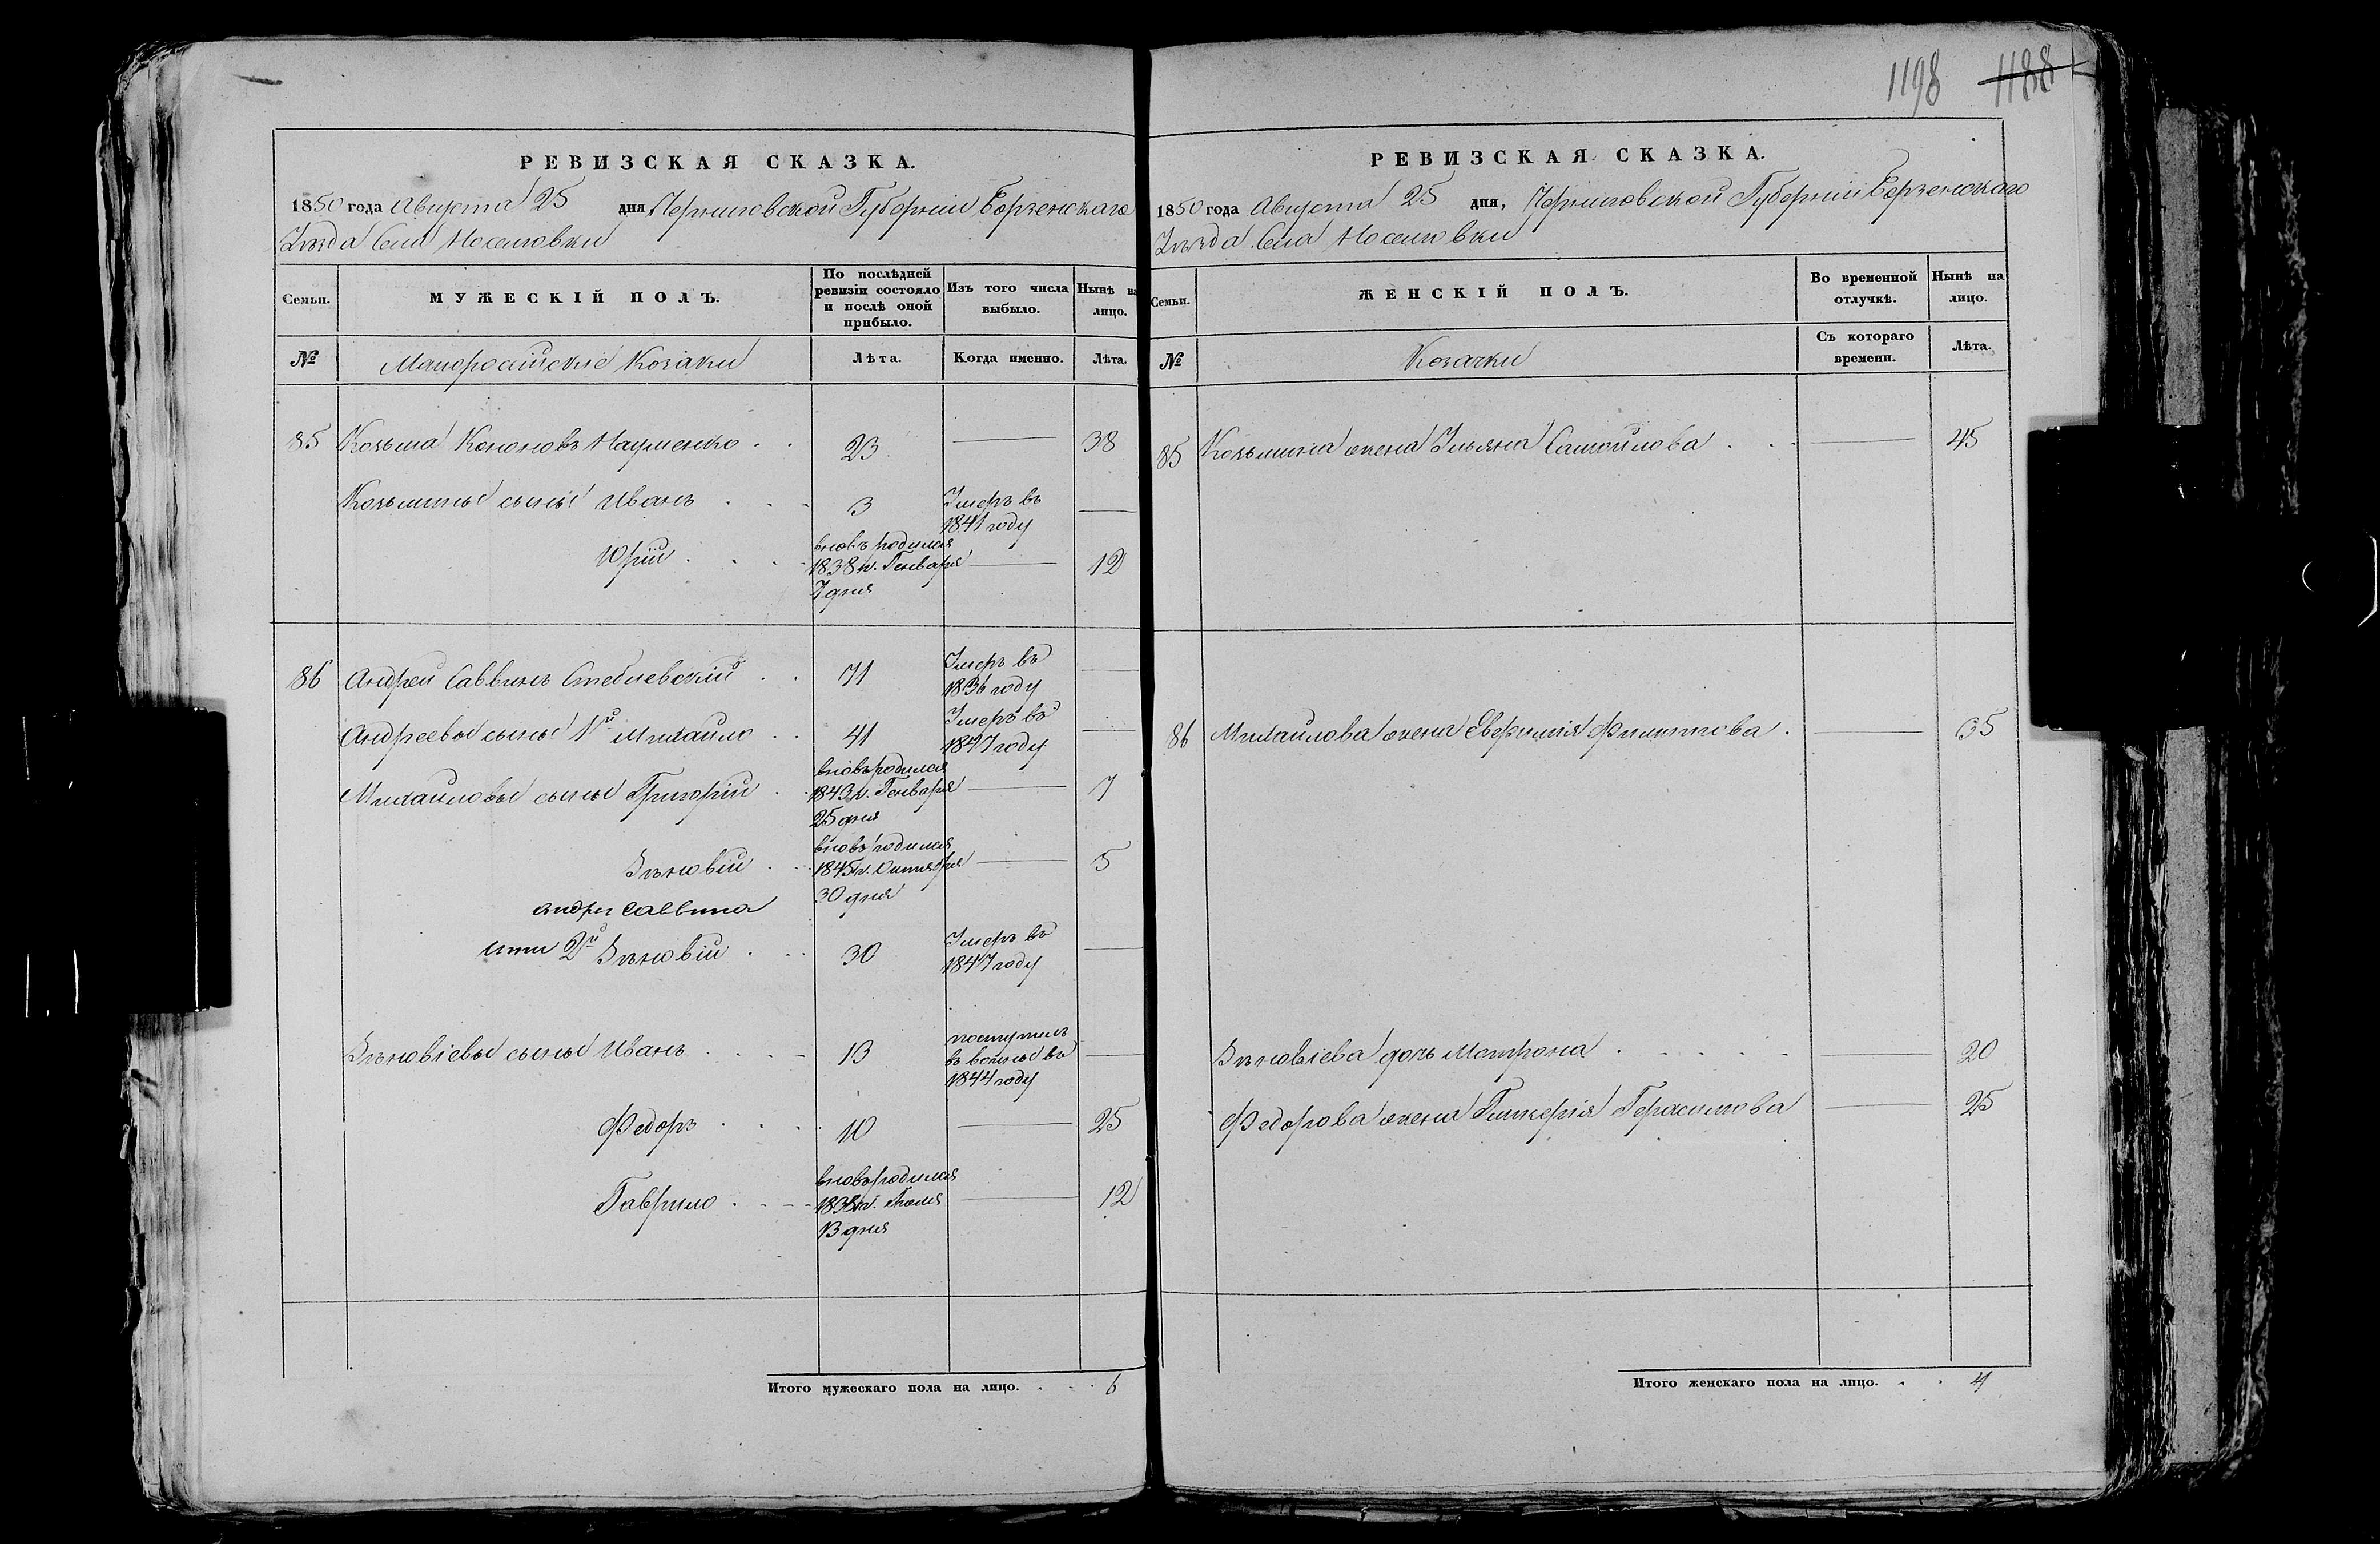 1198 1188
РЕВИЗСКАЯ СКАЗКА.
1850 года Августа 25 дня, Черниговской Губерніи Борзенскаго
Уѣзда Села
Семьи.
МУЖЕСКІЙ ПОЛЪ.
По послѣдней ревизіи состояло и послѣ оной прибыло.
Изъ того числа выбыло.
Нынѣ на лицо.
№
Малоросійскіе Козаки
Лѣта.
Когда именно.
Лѣта.
85 Козьма Кононовъ Науменко . . 23 — 38
Козьмины сыны Иванъ . . . 3 Умеръ въ 1841 году —
Юрій . . . вновь родился 1838 г. Генваря 7 дня — 12
86 Андрей Саввинъ Стеблевскій . . 71 Умеръ въ 1836 году —
Андреевы сыны 1й Михайло . . 41 Умеръ въ 1847 году —
Михайловы сыны Григорій . . вновь родился 1843 г. Генваря 25 дня — 7
Зѣновій . . вновь родился 1845 г. Октября 30 дня — 5
Андрея Саввина
сынъ 2й Зѣновій . . 30 Умеръ въ 1847 году —
Зѣновіевы сыны Иванъ . . . 13 поступилъ въ военны въ 1844 году —
Федоръ . . . 10 — 25
Гаврило . . . вновь родился 1838 г. Іюля 13 дня — 12
Итого мужескаго пола на лицо. . . . 6
РЕВИЗСКАЯ СКАЗКА.
1850 года Августа 25 дня, Черниговской Губерніи Борзенскаго
Уѣзда Села
Семьи.
ЖЕНСКІЙ ПОЛЪ.
Во временной отлучкѣ.
Нынѣ на лицо.
№
Козачки
Съ котораго времени.
Лѣта.
85 Козьмина жена Ульяна Самойлова . . . — 45
86 Михайлова жена Евфимія Филипова . — 35
Зѣновіева дочь Матрона . . . . . 20
Федорова жена Гликерія Герасимова — 25
Итого женскаго пола на лицо. . . 4